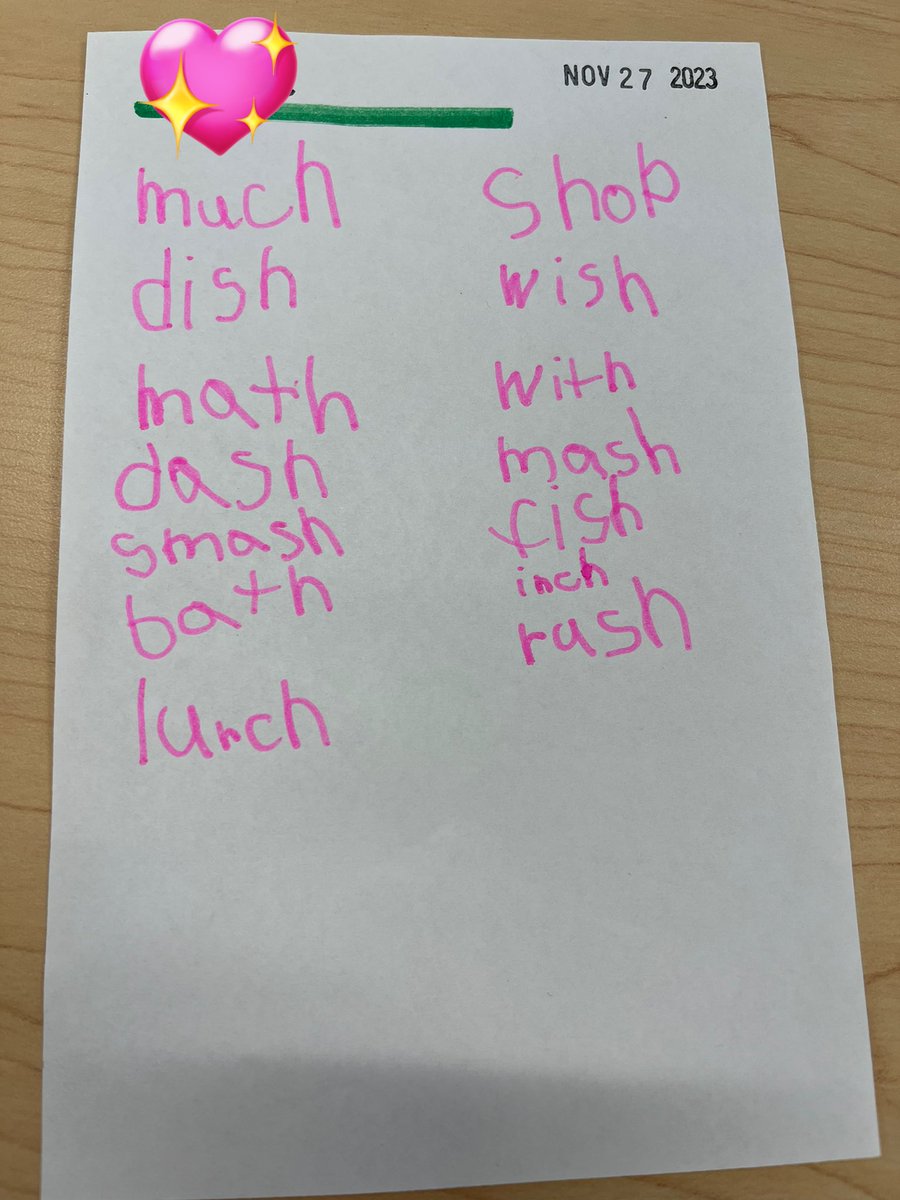 NOV 27 2023
much
dish
math
dash
smash
bath
lunch
shop
wish
with
mash
fish
inch
rash